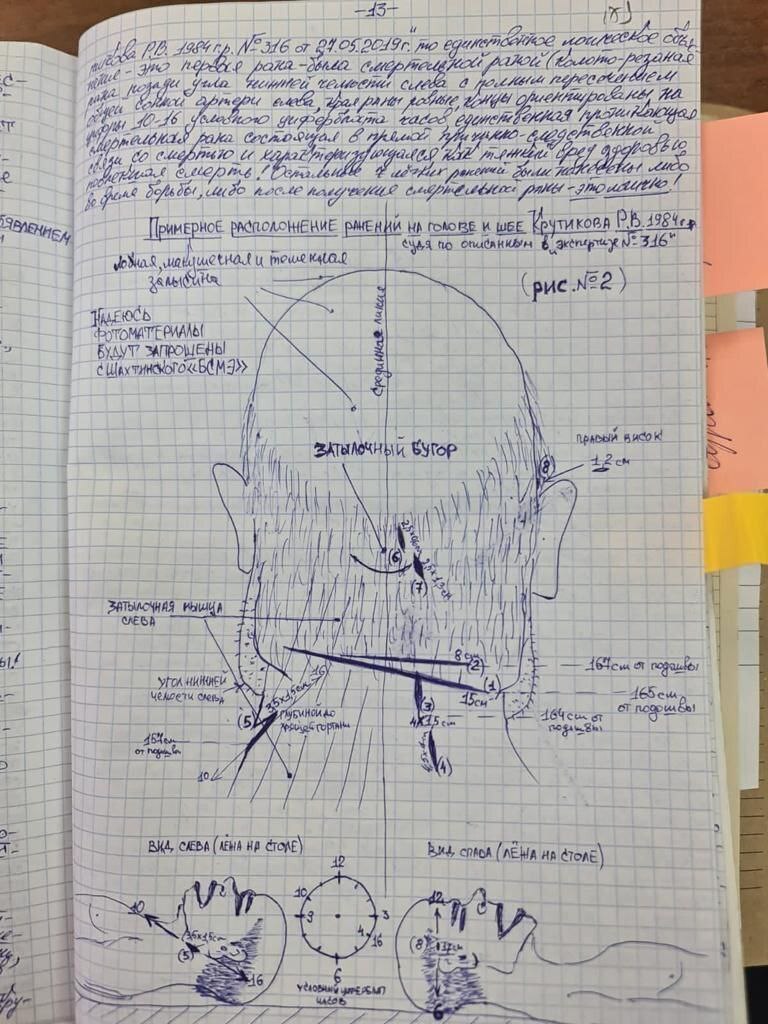 -13-
Р.В. 1984гр. №316 от 27.05.2019г. то единственное логическое объяс-
нение - это первая рана - была смертельной раной (колото-резаная
рана позади угла нижней челюсти слева с полным пересечением
общей сонной артери слева, края раны ровные, концы ориентированы на
цифры 10-16 условного циферблата часов, единственная проникающая
смертельная рана состоящая в прямой причинно-следственной
связи со смертью и характеризующаяся как тяжкий вред здоровью
повлекшая смерть! Остальные 7 лёгких ранений были нанесены либо
во время борьбы, либо после получения смертельной раны - это логично!
Примерное расположение ранений на голове и шее Крутикова Р.В. 1984г.р
судя по описанным в "экспертизе №316"
Лобная, макушечная и теменная
залысина
(рис. №2)
Надеюсь
фотоматериалы
будут запрошены
с Шахтинского «БСМЭ»
Срединная линия
Правый висок
(8)
1,2 см
Затылочный бугор
(6)
(7)
Затылочная мышца
слева
8см
(2)
167см от подошвы
(1)
15см
165см
от подошвы
164см от
подошвы
Угол нижней
челюсти слева
3,5х1,5см
16
(5)
Глубиной до
хрящей гортани
(3)
4х1,5см
(4)
от подошвы
10
Вид слева (лёжа на столе)
Вид спава (лёжа на столе)
12
10
3
3
4
16
6
Условный циферблат
часов
10
3,5х1,5см
(5)
16
12
(8)
6